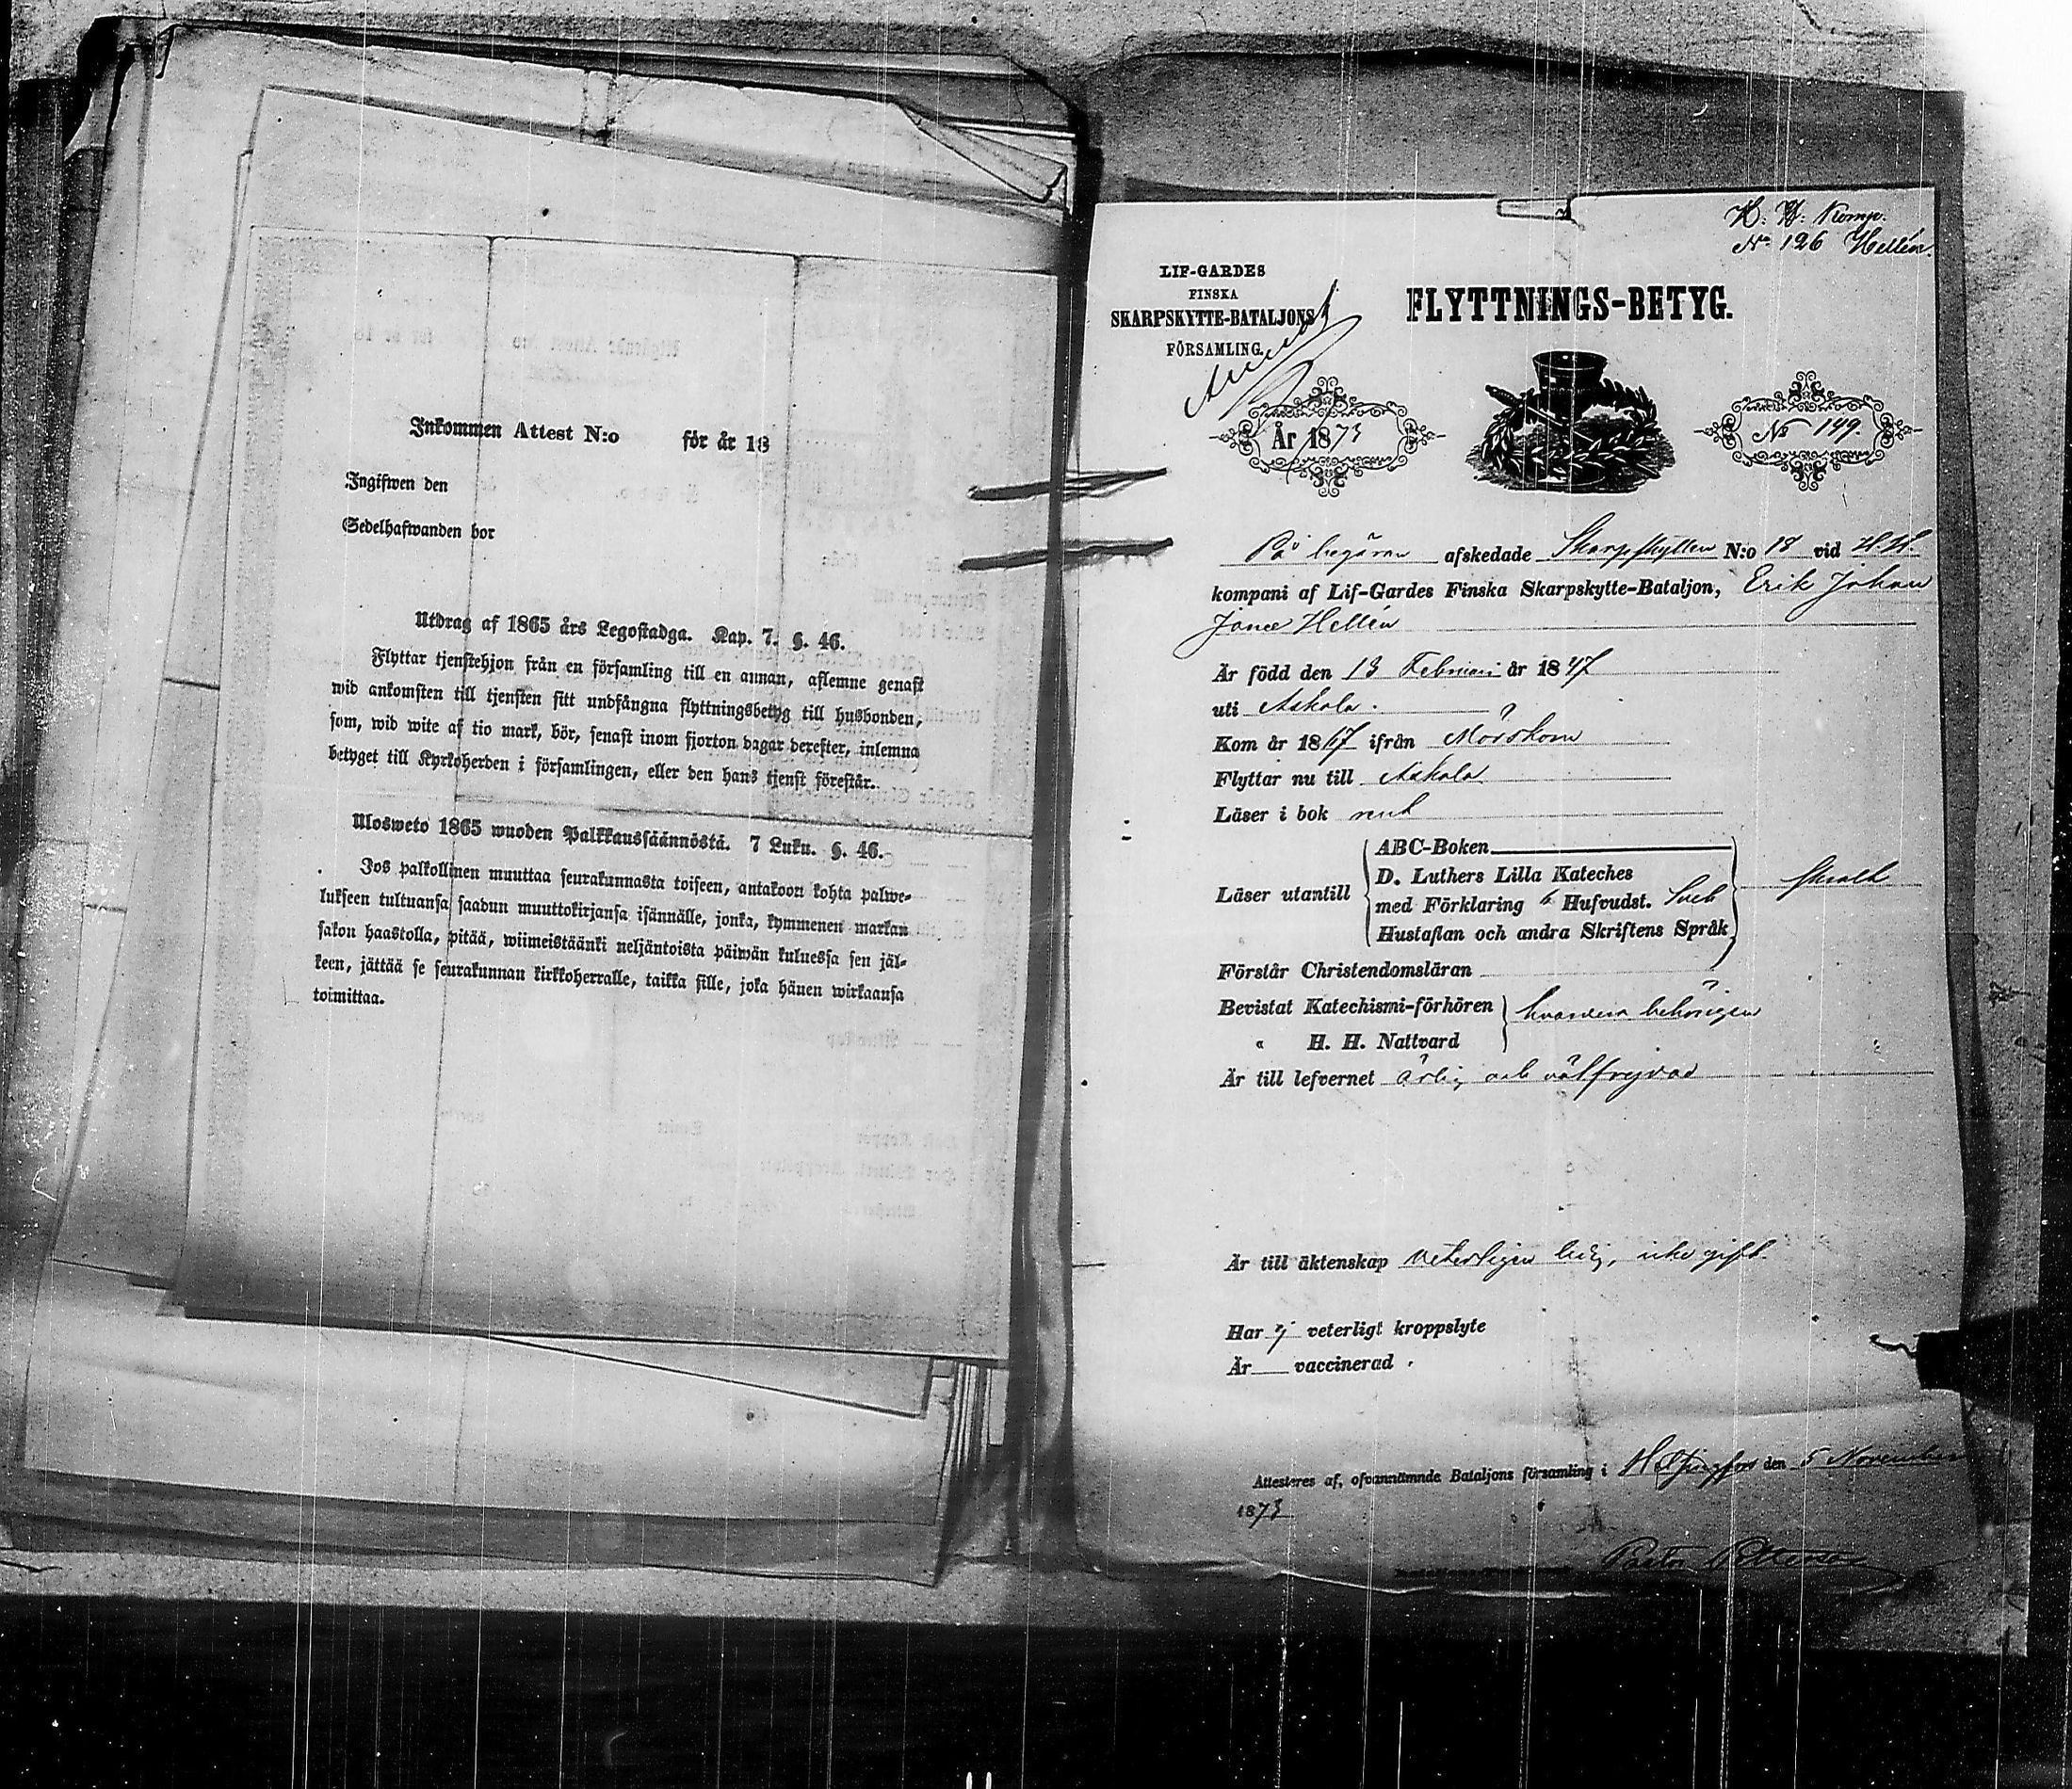 Inkommen Attest N:o för år 18
Ingifwen den
Sedelhafwanden bor
Utdrag af 1865 års Legostadga. Kap. 7. §. 46.
Flyttar tjenstehjon från en församling till en annan, aflemne genast
wid ankomsten till tjensten sitt undfångna flyttningsbetyg till husbonden,
som, wid wite af tio mark, bör, senast inom fjorton dagar derefter, inlemna
betyget till Kyrkoherden i församlingen, eller den hans tjenst förestår.
Ulosweto 1865 wuoden Palkkaussäännöstä. 7 Luku. §. 46.
Jos palkollinen muuttaa seurakunnasta toiseen, antakoon kohta palwe-
lukseen tultuansa saadun muuttokirjansa isännälle, jonka, kymmenen markan
sakon haastolla, pitää, wiimeistäänki neljäntoista päiwän kuluessa sen jäl-
keen, jättää se seurakunnan kirkkoherralle, taikka sille, joka hänen wirkaansa
toimittaa.
H. H. Komp.
No 126 Hellén.
LIF-GARDES
FINSKA
SKARPSKYTTE-BATALJONS
FÖRSAMLING.
FLYTTNINGS-BETYG.
År 1873
No 149.
På begäran afskedade Skarpskytten N:o 18 vid H.H.
kompani af Lif-Gardes Finska Skarpskytte-Bataljon, Erik Johan
Hellén
Är född den 13 Februari år 1847
uti Askola.
Kom år 1867 ifrån Mörskom
Flyttar nu till Askola
Läser i bok rent
Läser utantill
ABC-Boken
D. Luthers Lilla Kateches
med Förklaring Hufvudst.
Hustaflan och andra Skriftens Språk
Förstår Christendomsläran
Bevistat Katechismi-förhören
" H. H. Nattvard
behörigen
Är till lefvernet ärlig och välfrejdad
Är till äktenskap veterligen ledig, icke gift.
Har ej veterligt kroppslyte
Är vaccinerad
Attesteras af, ofvannämnda Bataljons församling i Helsingfors den 5 November
1873
Pastor